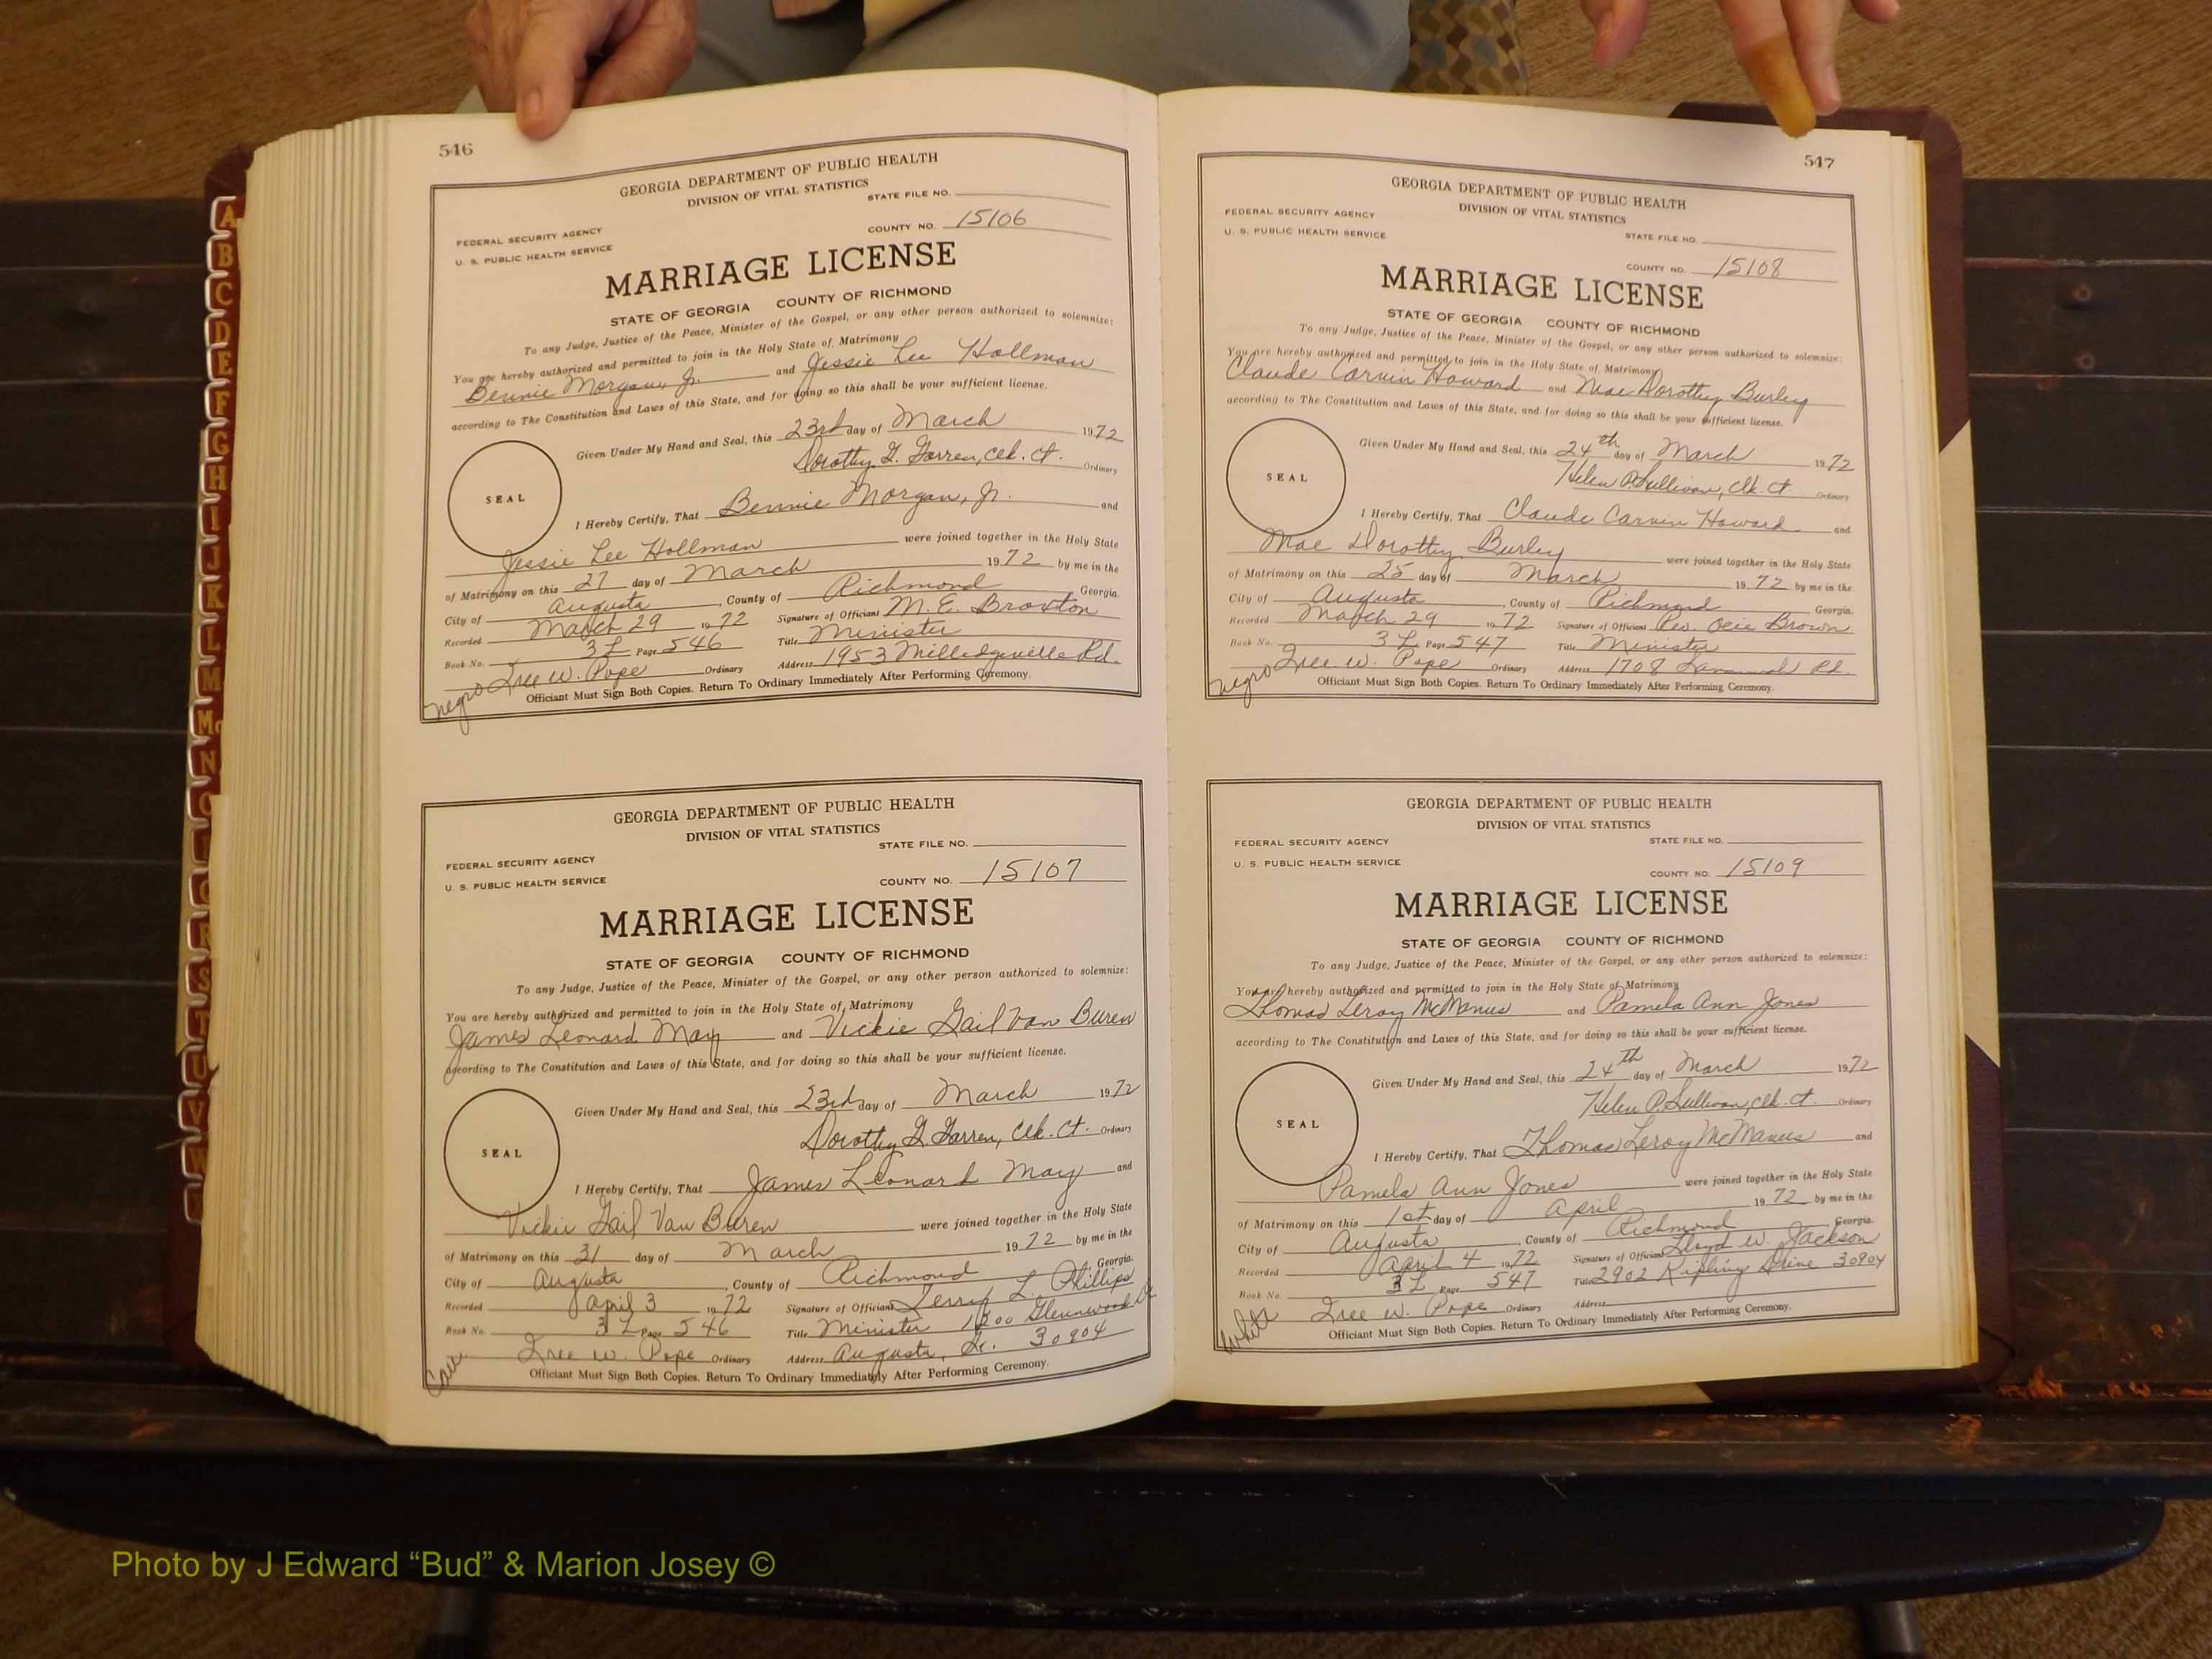 546
GEORGIA DEPARTMENT OF PUBLIC HEALTH
DIVISION OF VITAL STATISTICS
STATE FILE NO.
FEDERAL SECURITY AGENCY
U. S. PUBLIC HEALTH SERVICE
COUNTY NO. 15106
MARRIAGE LICENSE
STATE OF GEORGIA COUNTY OF RICHMOND
To any Judge, Justice of the Peace, Minister of the Gospel, or any other person authorized to solemnize:
You are hereby authorized and permitted to join in the Holy State of Matrimony
Bennie Morgan, Jr. and Jessie Lee Hollman
according to The Constitution and Laws of this State, and for doing so this shall be your sufficient license.
Given Under My Hand and Seal, this 23rd day of March 1972
Dorothy G. Farren, Clk. Ct. Ordinary
SEAL
I Hereby Certify, That Bennie Morgan, Jr. and
Jessie Lee Hollman were joined together in the Holy State
of Matrimony on this 27 day of March 1972 by me in the
City of Augusta, County of Richmond Georgia.
Recorded March 29 1972 Signature of Officiant M. E. Broxton
Book No. 3L Page 546 Title Minister
Tree W. Pope Ordinary Address 1953 Milledgeville Rd.
negro Officiant Must Sign Both Copies. Return To Ordinary Immediately After Performing Ceremony.
GEORGIA DEPARTMENT OF PUBLIC HEALTH
DIVISION OF VITAL STATISTICS
STATE FILE NO.
FEDERAL SECURITY AGENCY
U. S. PUBLIC HEALTH SERVICE
COUNTY NO. 15107
MARRIAGE LICENSE
STATE OF GEORGIA COUNTY OF RICHMOND
To any Judge, Justice of the Peace, Minister of the Gospel, or any other person authorized to solemnize:
You are hereby authorized and permitted to join in the Holy State of Matrimony
James Leonard May and Vickie Gail Van Buren
according to The Constitution and Laws of this State, and for doing so this shall be your sufficient license.
Given Under My Hand and Seal, this 23rd day of March 1972
Dorothy G. Farren, Clk. Ct. Ordinary
SEAL
I Hereby Certify, That James Leonard May and
Vickie Gail Van Buren were joined together in the Holy State
of Matrimony on this 31 day of March 1972 by me in the
City of Augusta, County of Richmond Georgia.
Recorded April 3 1972 Signature of Officiant L. Phillips
Book No. 3L Page 546 Title Minister 1200 Glennwood Dr
Tree W. Pope Ordinary Address Augusta, Ga. 30904
Officiant Must Sign Both Copies. Return To Ordinary Immediately After Performing Ceremony.
547
GEORGIA DEPARTMENT OF PUBLIC HEALTH
DIVISION OF VITAL STATISTICS
FEDERAL SECURITY AGENCY
U. S. PUBLIC HEALTH SERVICE
STATE FILE NO.
COUNTY NO. 15108
MARRIAGE LICENSE
STATE OF GEORGIA COUNTY OF RICHMOND
To any Judge, Justice of the Peace, Minister of the Gospel, or any other person authorized to solemnize:
You are hereby authorized and permitted to join in the Holy State of Matrimony
Claude Carvin Howard and Mae Dorothy Burley
according to The Constitution and Laws of this State, and for doing so this shall be your sufficient license.
Given Under My Hand and Seal, this 24th day of March 1972
Helen P. Sullivan, Clk. Ct. Ordinary
SEAL
I Hereby Certify, That Claude Carvin Howard and
Mae Dorothy Burley were joined together in the Holy State
of Matrimony on this 25 day of March 1972 by me in the
City of Augusta, County of Richmond Georgia.
Recorded March 29 1972 Signature of Officiant Rev. Ocie Brown
Book No. 3L Page 547 Title Minister
Tree W. Pope Ordinary Address 1708 Rd.
negro Officiant Must Sign Both Copies. Return To Ordinary Immediately After Performing Ceremony.
GEORGIA DEPARTMENT OF PUBLIC HEALTH
DIVISION OF VITAL STATISTICS
FEDERAL SECURITY AGENCY
STATE FILE NO.
U. S. PUBLIC HEALTH SERVICE
COUNTY NO. 15109
MARRIAGE LICENSE
STATE OF GEORGIA COUNTY OF RICHMOND
To any Judge, Justice of the Peace, Minister of the Gospel, or any other person authorized to solemnize:
You are hereby authorized and permitted to join in the Holy State of Matrimony
Thomas Leroy McManus and Pamela Ann Jones
according to The Constitution and Laws of this State, and for doing so this shall be your sufficient license.
Given Under My Hand and Seal, this 24th day of March 1972
Helen P. Sullivan, Clk. Ct. Ordinary
SEAL
I Hereby Certify, That Thomas Leroy McManus and
Pamela Ann Jones were joined together in the Holy State
of Matrimony on this 1st day of April 1972 by me in the
City of Augusta, County of Richmond Georgia.
Recorded April 4 1972 Signature of Officiant Lloyd W. Jackson
Book No. 3L Page 547 Title 2902 Kipling Drive 30904
Tree W. Pope Ordinary Address
white Officiant Must Sign Both Copies. Return To Ordinary Immediately After Performing Ceremony.
A
B
C
D
E
F
G
H
I
J
K
L
M
Mc
N
O
P
Q
R
S
T
U
V
W
Photo by J Edward “Bud” & Marion Josey ©